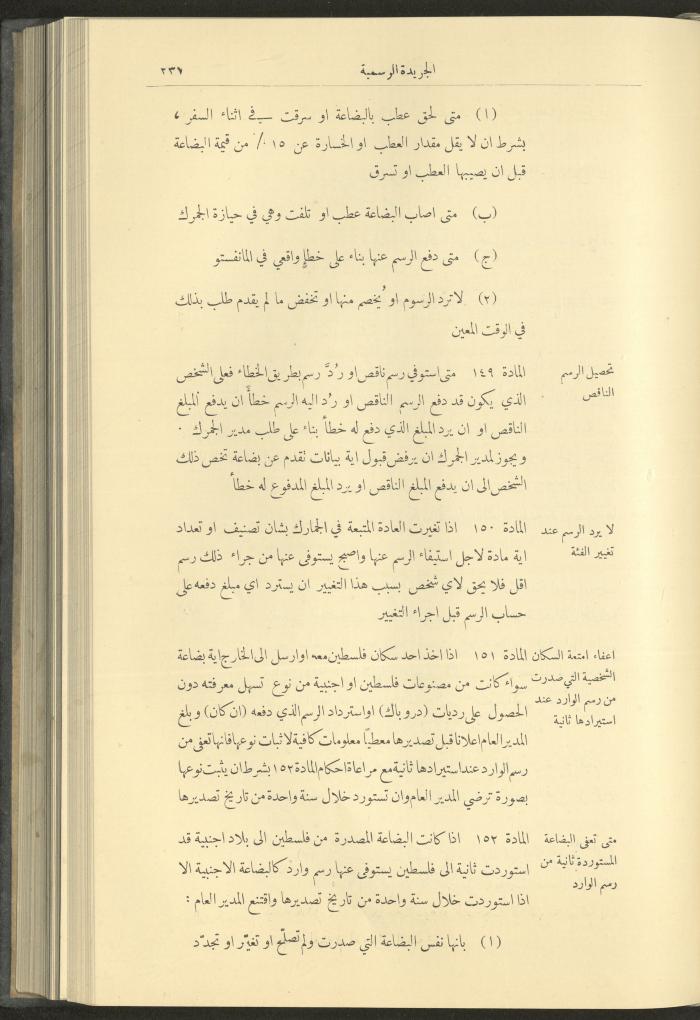 الجريدة الرسمية
٢٣٧
(١) متى لحق عطب بالبضاعة او سرقت في اثناء السفر ،
بشرط ان لا يقل مقدار العطب او الخسارة عن ١٥ ٪ من قيمة البضاعة
قبل ان يصيبها العطب او تسرق
(ب) متى اصاب البضاعة عطب او تلفت وهي في حيازة الجمرك
(ج) متى دفع الرسم عنها بناء على خطإ واقعي في المانفستو
(٢) لا ترد الرسوم او يُخصم منها او تخفض ما لم يقدم طلب بذلك
في الوقت المعين
تحصيل الرسم
الناقص
المادة ١٤٩ متى استوفي رسم ناقص او رُدَّ رسم بطريق الخطاء فعلى الشخص
الذي يكون قد دفع الرسم الناقص او رُد اليه الرسم خطأً ان يدفع المبلغ
الناقص او ان يرد المبلغ الذي دفع له خطأ بناء على طلب مدير الجمرك .
ويجوز لمدير الجمرك ان يرفض قبول اية بيانات تقدم عن بضاعة تخص ذلك
الشخص الى ان يدفع المبلغ الناقص او يرد المبلغ المدفوع له خطأ
لا يرد الرسم عند
تغيير الفئة
المادة ١٥٠ اذا تغيرت العادة المتبعة في الجمارك بشان تصنيف او تعداد
اية مادة لاجل استيفاء الرسم عنها واصبح يستوفى عنها من جراء ذلك رسم
اقل فلا يحق لاي شخص بسبب هذا التغيير ان يسترد اي مبلغ دفعه على
حساب الرسم قبل اجراء التغيير
اعفاء امتعة السكان
الشخصية التي صدرت
من رسم الوارد عند
استيرادها ثانية
المادة ١٥١ اذا اخذ احد سكان فلسطين معه او ارسل الى الخارج اية بضاعة
سواء كانت من مصنوعات فلسطين او اجنبية من نوع تسهل معرفته دون
الحصول على رديات (درو باك) او استرداد الرسم الذي دفعه (ان كان) وبلغ
المدير العام اعلانا قبل تصديرها معطيًا معلومات كافية لاثبات نوعها فانها تعفى من
رسم الوارد عند استيرادها ثانية مع مراعاة احكام المادة ١٥٢ بشرط ان يثبت نوعها
بصورة ترضي المدير العام وان تستورد خلال سنة واحدة من تاريخ تصديرها
متى تعفى البضاعة
المستوردة ثانية من
رسم الوارد
المادة ١٥٢ اذا كانت البضاعة المصدرة من فلسطين الى بلاد اجنبية قد
استوردت ثانية الى فلسطين يستوفى عنها رسم وارد كالبضاعة الاجنبية الا
اذا استوردت خلال سنة واحدة من تاريخ تصديرها واقتنع المدير العام :
(١) بانها نفس البضاعة التي صدرت ولم تصلّح او تغيّر او تجدّد